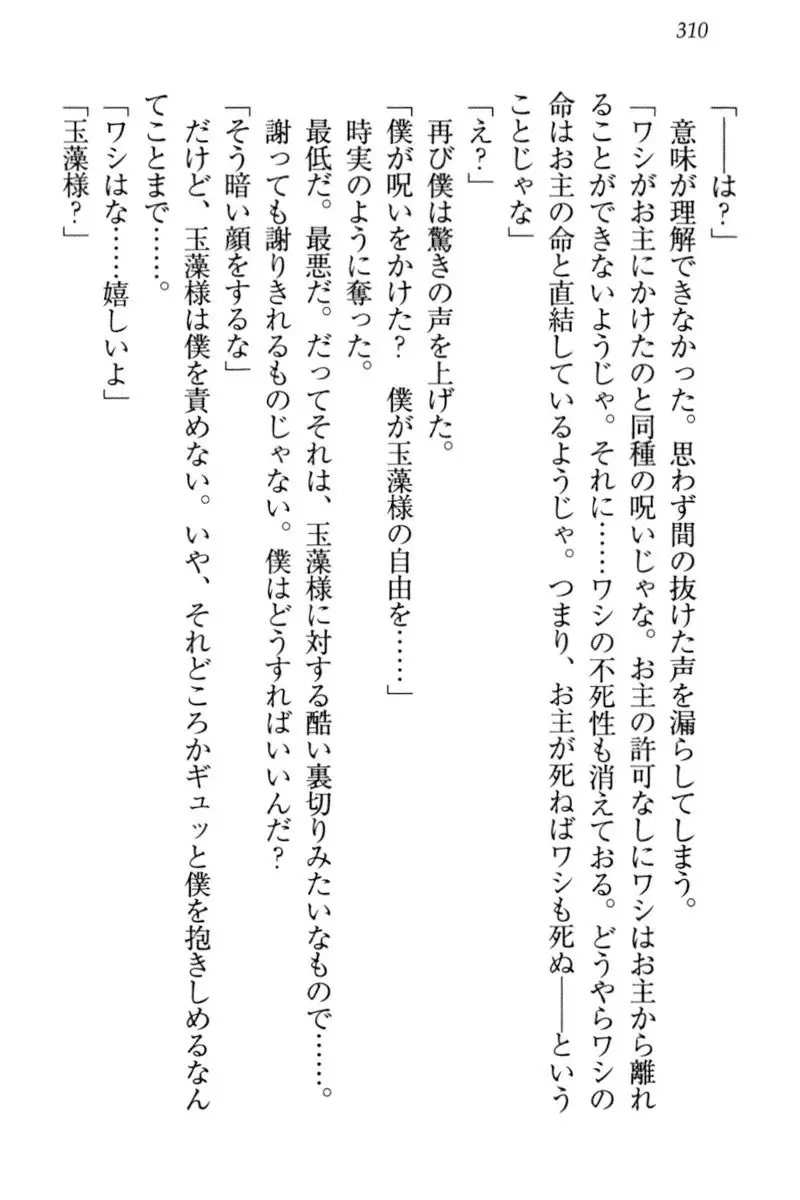 310
「――は？」
　意味が理解できなかった。思わず間の抜けた声を漏らしてしまう。
「ワシがお主にかけたのと同種の呪いじゃな。お主の許可なしにワシはお主から離れ
ることができないようじゃ。それに……ワシの不死性も消えておる。どうやらワシの
命はお主の命と直結しているようじゃ。つまり、お主が死ねばワシも死ぬ――という
ことじゃな」
「え？」
　再び僕は驚きの声を上げた。
「僕が呪いをかけた？　僕が玉藻様の自由を……」
　時実のように奪った。
　最低だ。最悪だ。だってそれは、玉藻様に対する酷い裏切りみたいなもので……。
　謝っても謝りきれるものじゃない。僕はどうすればいいんだ？
「そう暗い顔をするな」
　だけど、玉藻様は僕を責めない。いや、それどころかギュッと僕を抱きしめるなん
てことまで……。
「ワシはな……嬉しいよ」
「玉藻様？」